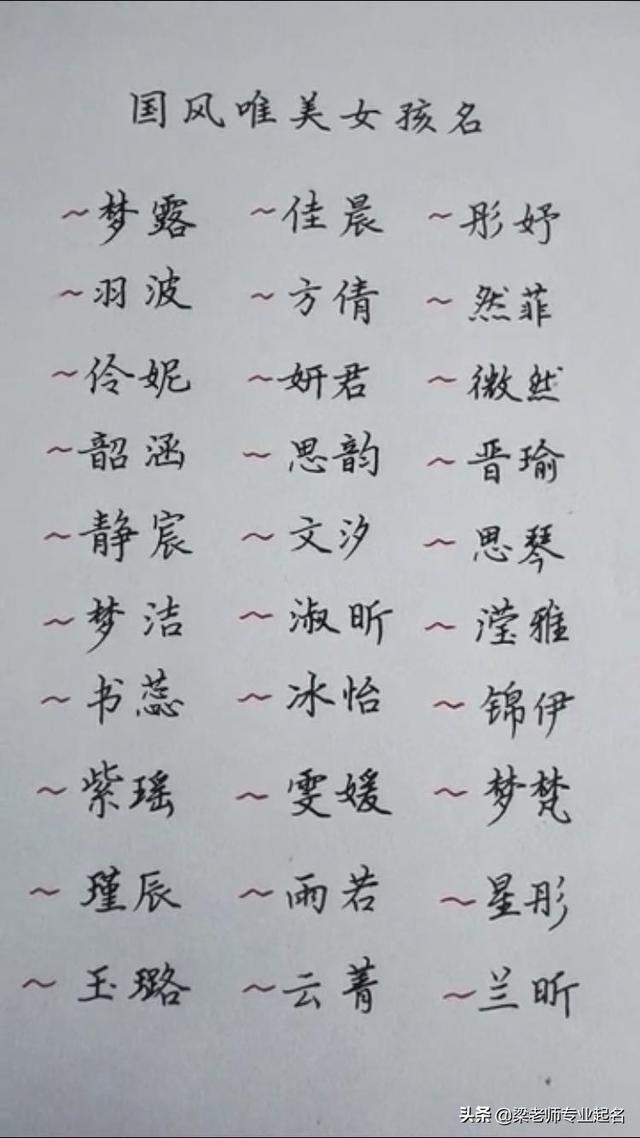 国风唯美女孩名
~梦露 ~佳晨 ~彤妤
~羽波 ~方倩 ~然菲
~伶妮 ~妍君 ~微然
~韶涵 ~思韵 ~晋瑜
~静宸 ~文汐 ~思琴
~梦洁 ~淑昕 ~滢雅
~书蕊 ~冰怡 ~锦伊
~紫瑶 ~雯媛 ~梦梵
~瑾辰 ~雨若 ~星彤
~玉璐 ~云菁 ~兰昕
头条 @梁老师专业起名